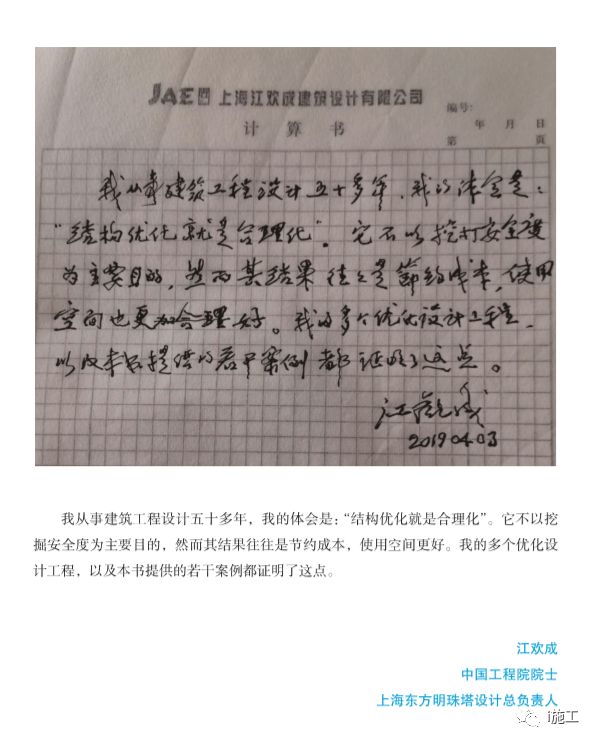 JAE 上海江欢成建筑设计有限公司
计 算 书
编号:
年 月 日
第 页
我从事建筑工程设计五十多年，我的体会是：
“结构优化就是合理化”。它不以挖掘安全度
为主要目的，然而其结果往往是节约成本，使用
空间也更加合理好。我的多个优化设计工程，
以及本书提供的若干案例都证明了这点。
江欢成
2019 04 03
我从事建筑工程设计五十多年，我的体会是：“结构优化就是合理化”。它不以挖
掘安全度为主要目的，然而其结果往往是节约成本，使用空间更好。我的多个优化设
计工程，以及本书提供的若干案例都证明了这点。
江欢成
中国工程院院士
上海东方明珠塔设计总负责人
i施工